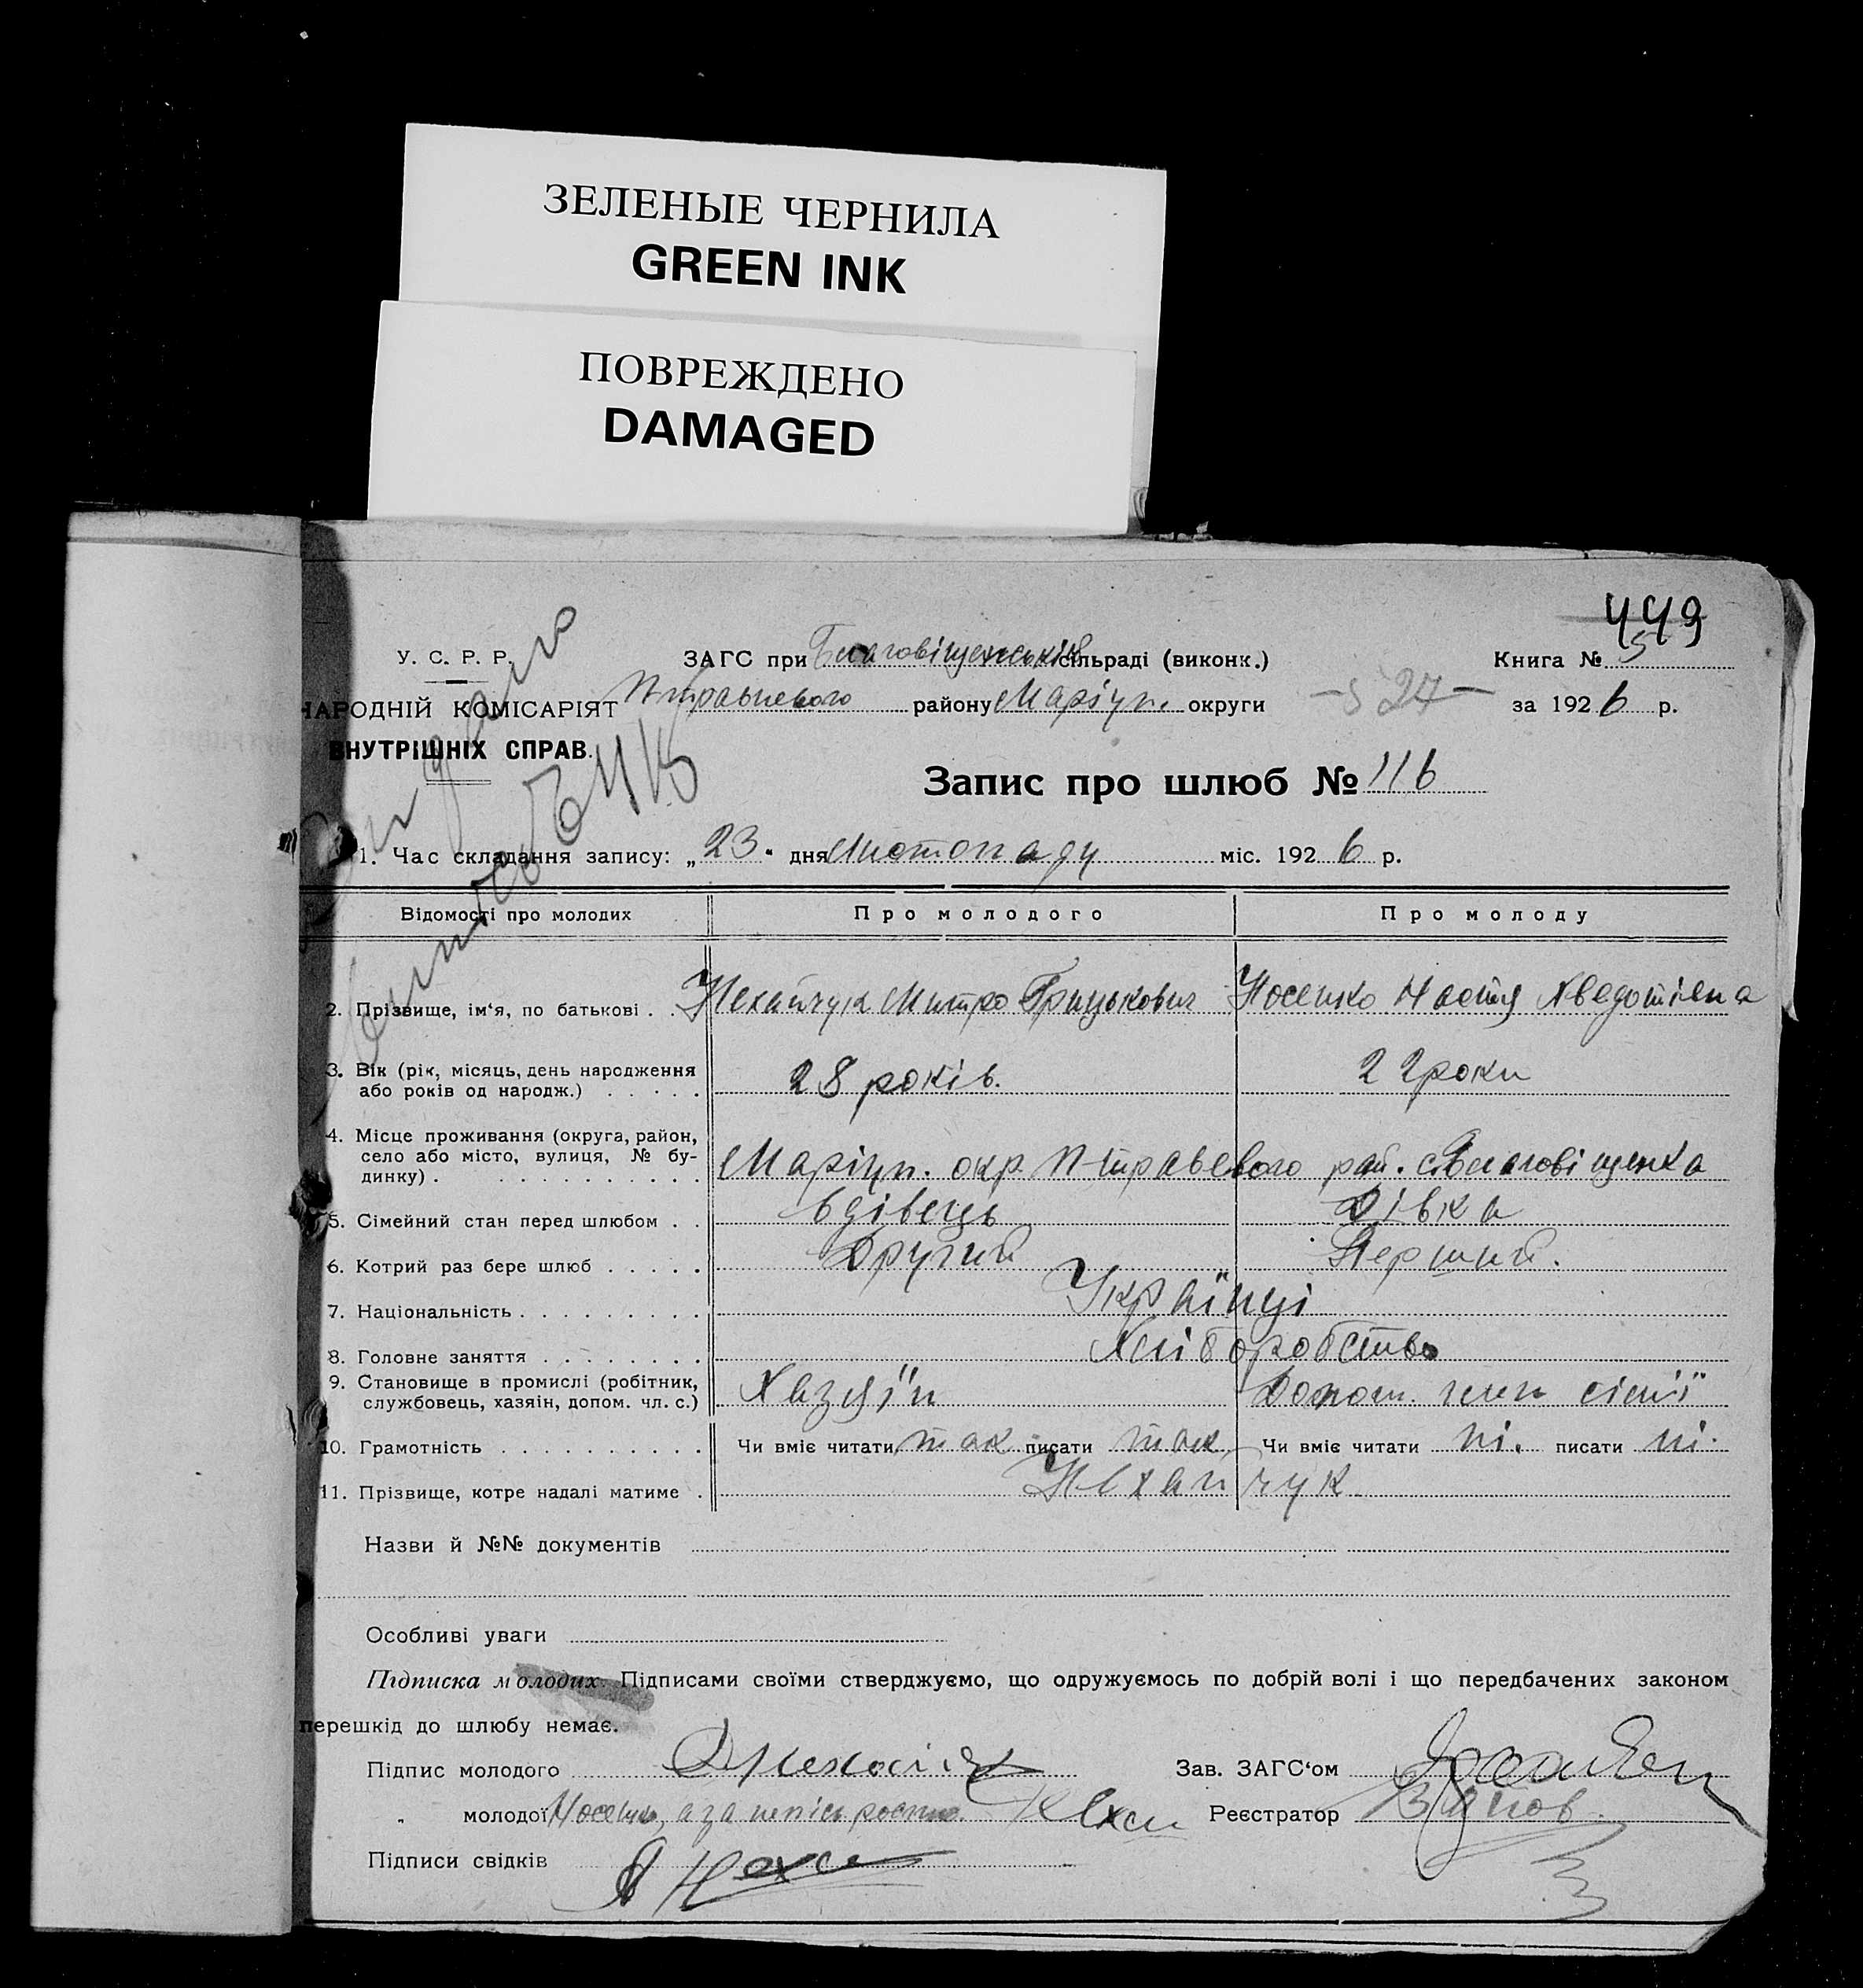 ЗЕЛЕНЫЕ ЧЕРНИЛА
GREEN INK
ПОВРЕЖДЕНО
DAMAGED
449
У. С. Р. Р. ЗАГС при Благовіщенській сільраді (виконк.) Книга № 5
НАРОДНІЙ КОМІСАРІЯТ району Маріуп. округи – 527 – за 1926 р.
ВНУТРІШНІХ СПРАВ.
Запис про шлюб № 116
1. Час складання запису: „23" дня Листопаду міс. 1926 р.
Відомості про молодих Про молодого Про молоду
2. Прізвище, ім'я, по батькові . . Нехайчук Митро Грицькович Носенко Настя Авдотіевна
3. Вік (рік, місяць, день народження
або років од народж.) . . . . . 28 років. 22 роки
4. Місце проживання (округа, район,
село або місто, вулиця, № бу-
динку) . . . . . . . . . . . Маріуп. окр. рай. с. Благовіщенка
5. Сімейний стан перед шлюбом . . Вдівець Дівка
6. Котрий раз бере шлюб . . . . . Другий Перший.
7. Національність . . . . . . . . . Українці
8. Головне заняття . . . . . . . . Хліборобство
9. Становище в промислі (робітник,
службовець, хазяін, допом. чл. с.) Хазяїн Допом. член сім'ї
10. Грамотність . . . . . . . . . . Чи вміє читати так писати так Чи вміє читати ні. писати ні.
11. Прізвище, котре надалі матиме . Нехайчук
Назви й №№ документів
Особливі уваги
Підписка молодих. Підписами своїми стверджуємо, що одружуємось по добрій волі і що передбачених законом
перешкід до шлюбу немає.
Підпис молодого Зав. ЗАГС'ом
" молодої Носенко, а за Реєстратор
Підписи свідків